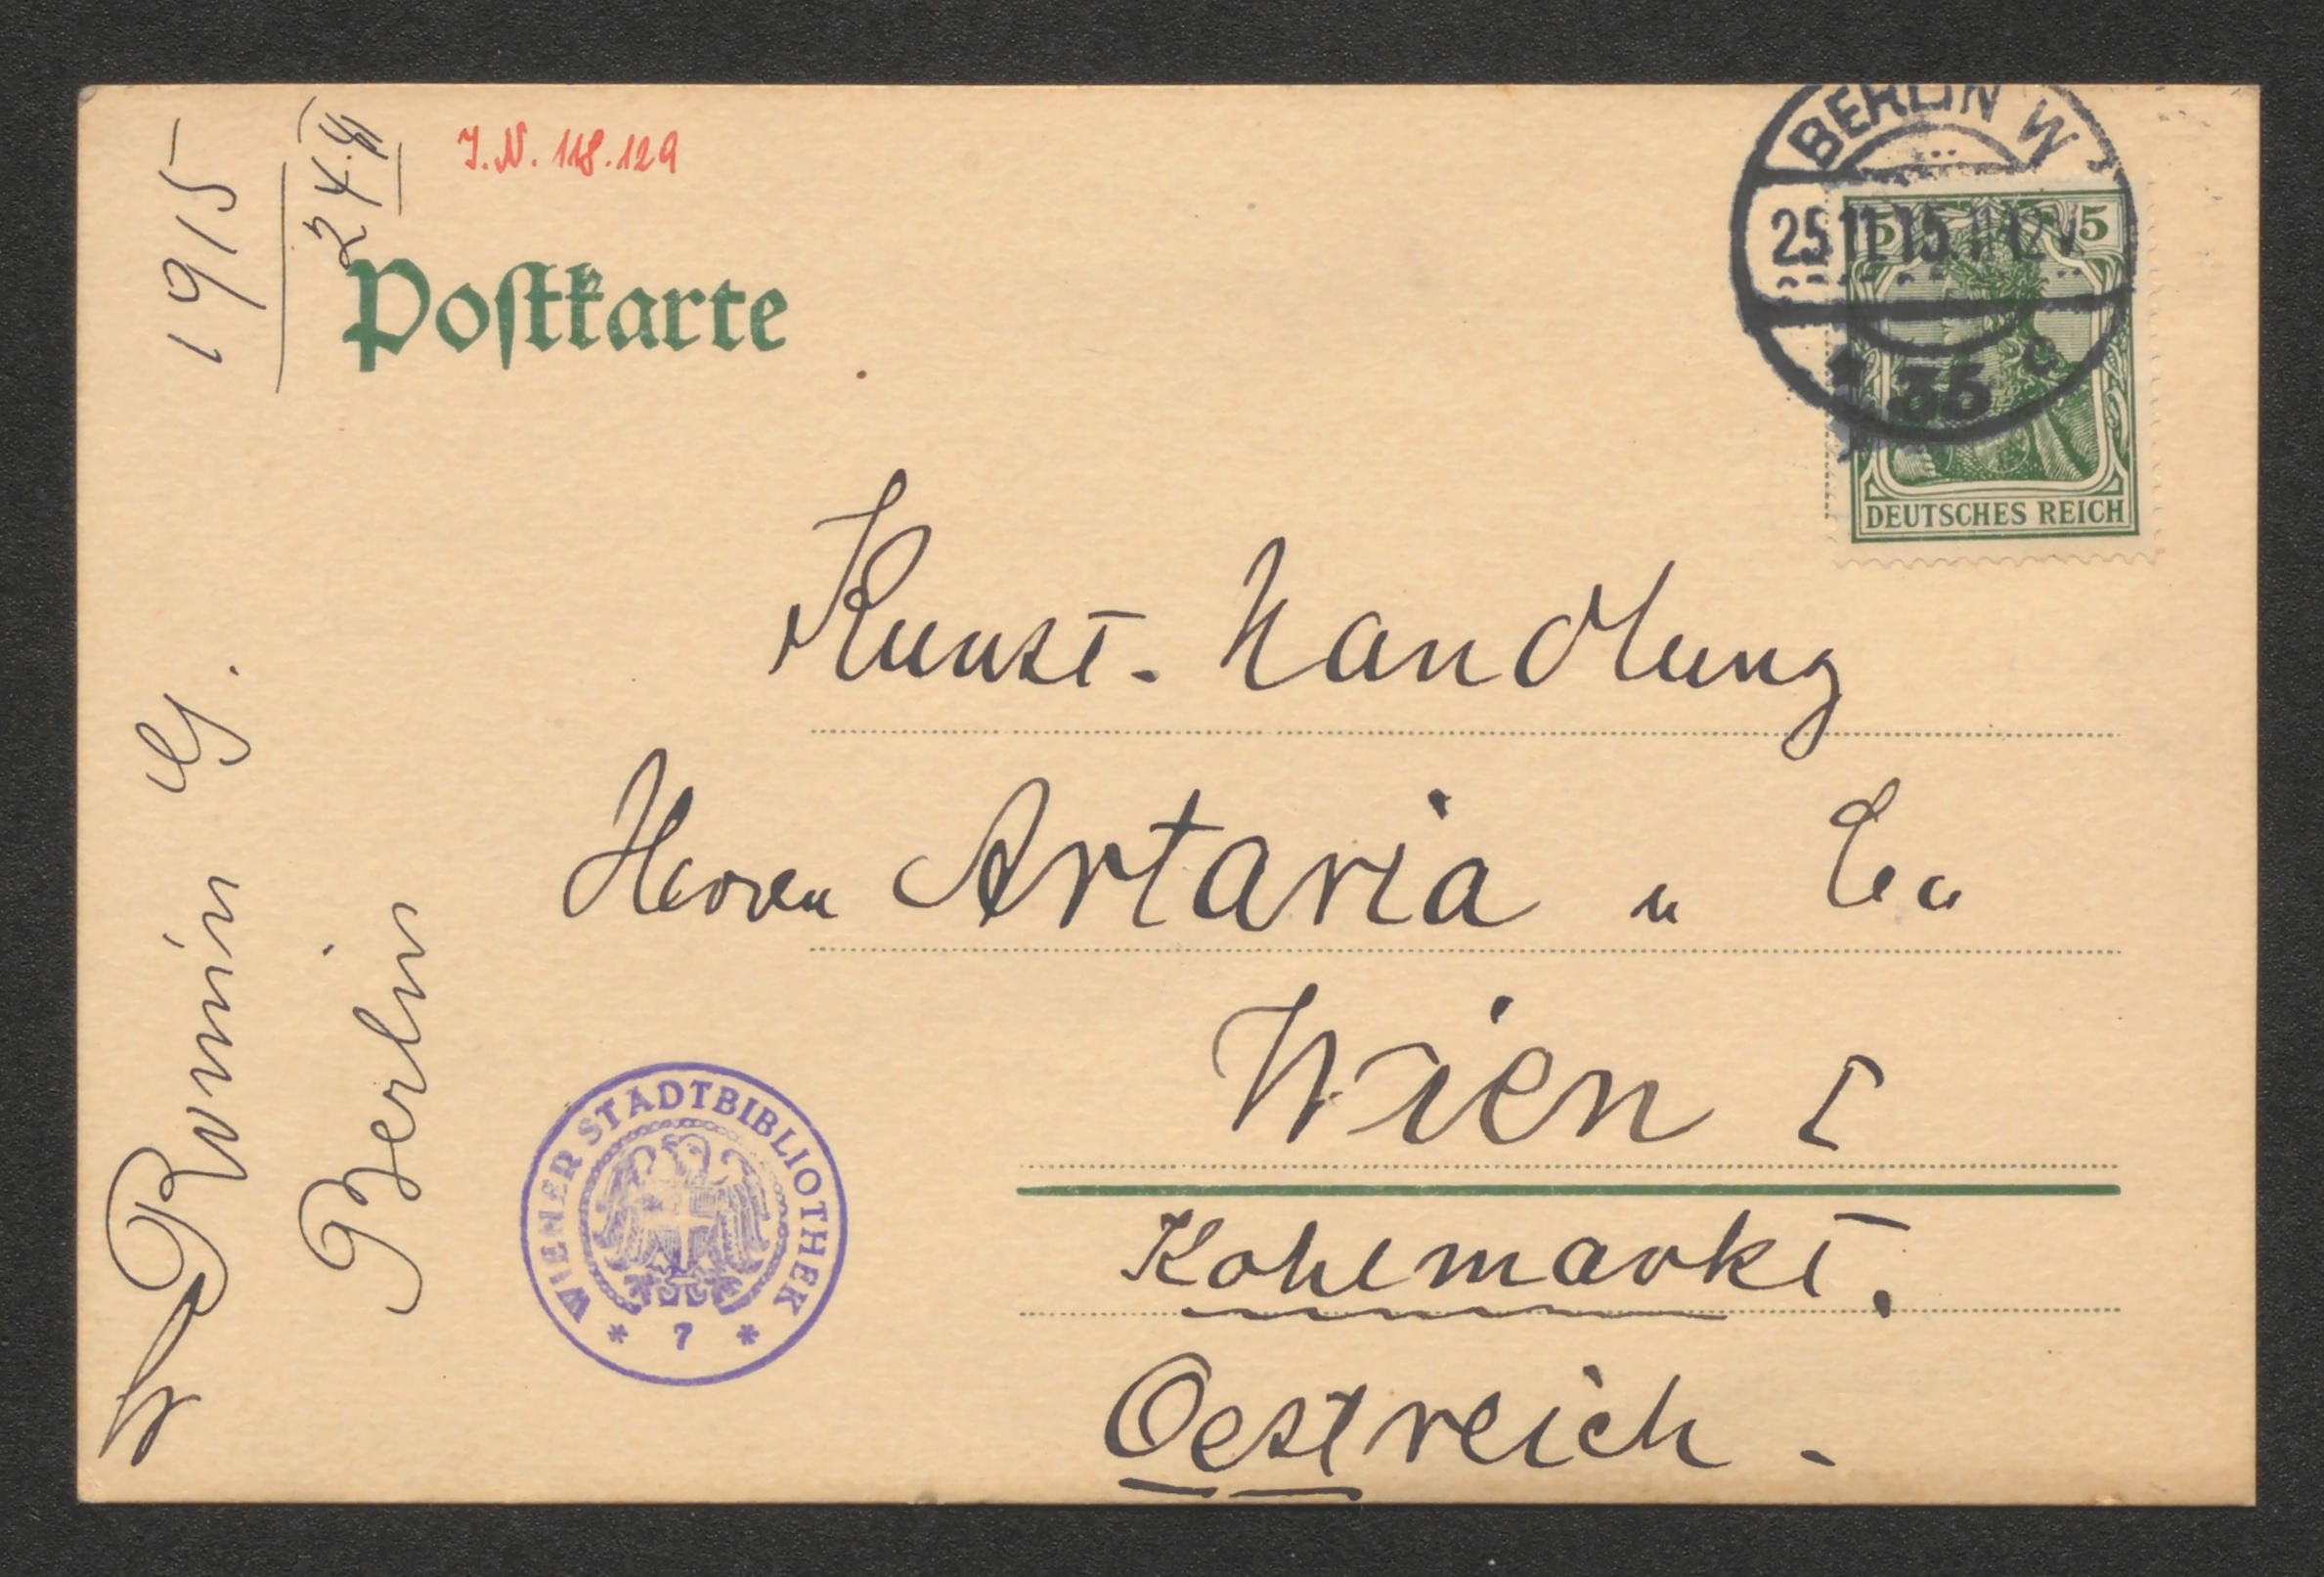 1915
24.
J.N. 118.129
Postkarte
BERLIN W
25.11.15.11-12V
* 35 c
5 5
DEUTSCHES REICH
Kunst-Handlung
Herren Artaria u Co
Wien I
Kohlmarkt.
Oestreich -
Berlin
WIENER STADTBIBLIOTHEK
* 7 *